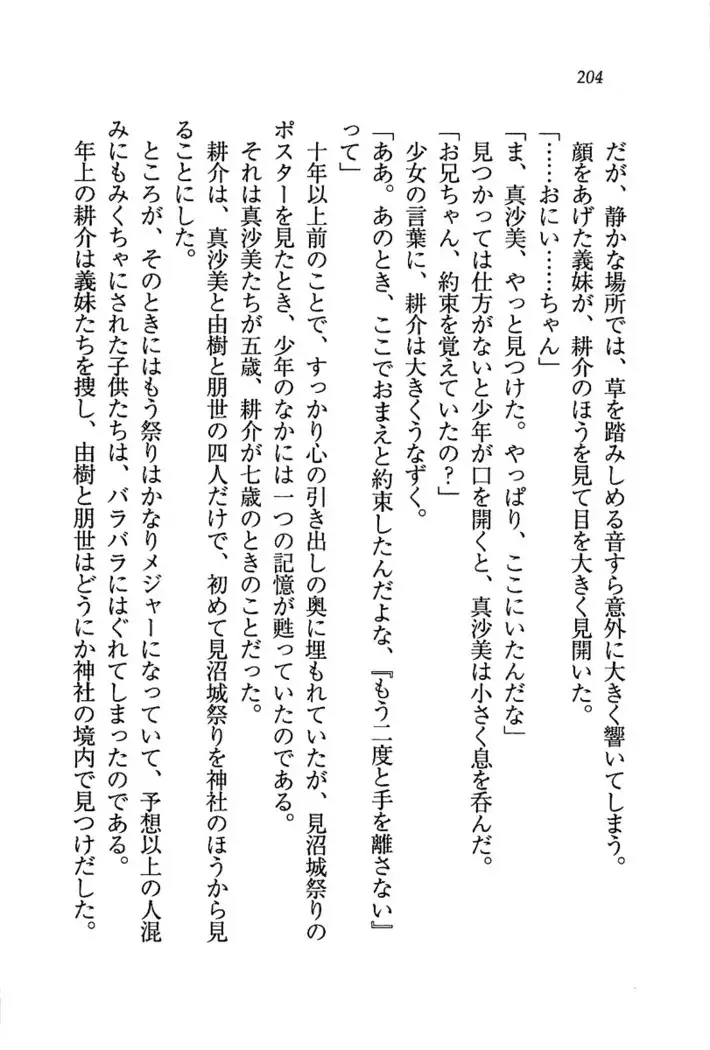 204
だが、静かな場所では、草を踏みしめる音すら意外に大きく響いてしまう。
顔をあげた義妹が、耕介のほうを見て目を大きく見開いた。
「……おにい……ちゃん」
「ま、真沙美、やっと見つけた。やっぱり、ここにいたんだな」
見つかっては仕方がないと少年が口を開くと、真沙美は小さく息を呑んだ。
「お兄ちゃん、約束を覚えていたの？」
少女の言葉に、耕介は大きくうなずく。
「ああ。あのとき、ここでおまえと約束したんだよな、『もう二度と手を離さない』
って」
十年以上前のことで、すっかり心の引き出しの奥に埋もれていたが、見沼城祭りの
ポスターを見たとき、少年のなかには一つの記憶が甦っていたのである。
それは真沙美たちが五歳、耕介が七歳のときのことだった。
耕介は、真沙美と由樹と朋世の四人だけで、初めて見沼城祭りを神社のほうから見
ることにした。
ところが、そのときにはもう祭りはかなりメジャーになっていて、予想以上の人混
みにもみくちゃにされた子供たちは、バラバラにはぐれてしまったのである。
年上の耕介は義妹たちを捜し、由樹と朋世はどうにか神社の境内で見つけだした。